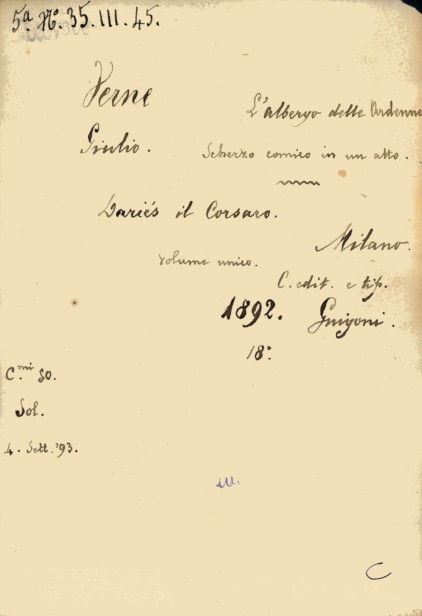 5ª N.º 35.III.45.
Verne
Giulio.
L'albergo delle Ardenne
Scherzo comico in un atto.
Dariés il Corsaro.
Milano.
Volume unico.
C. edit. e tip.
1892. Guigoni.
18º.
C.mi 50.
Sol.
4. Sett. '93.
C